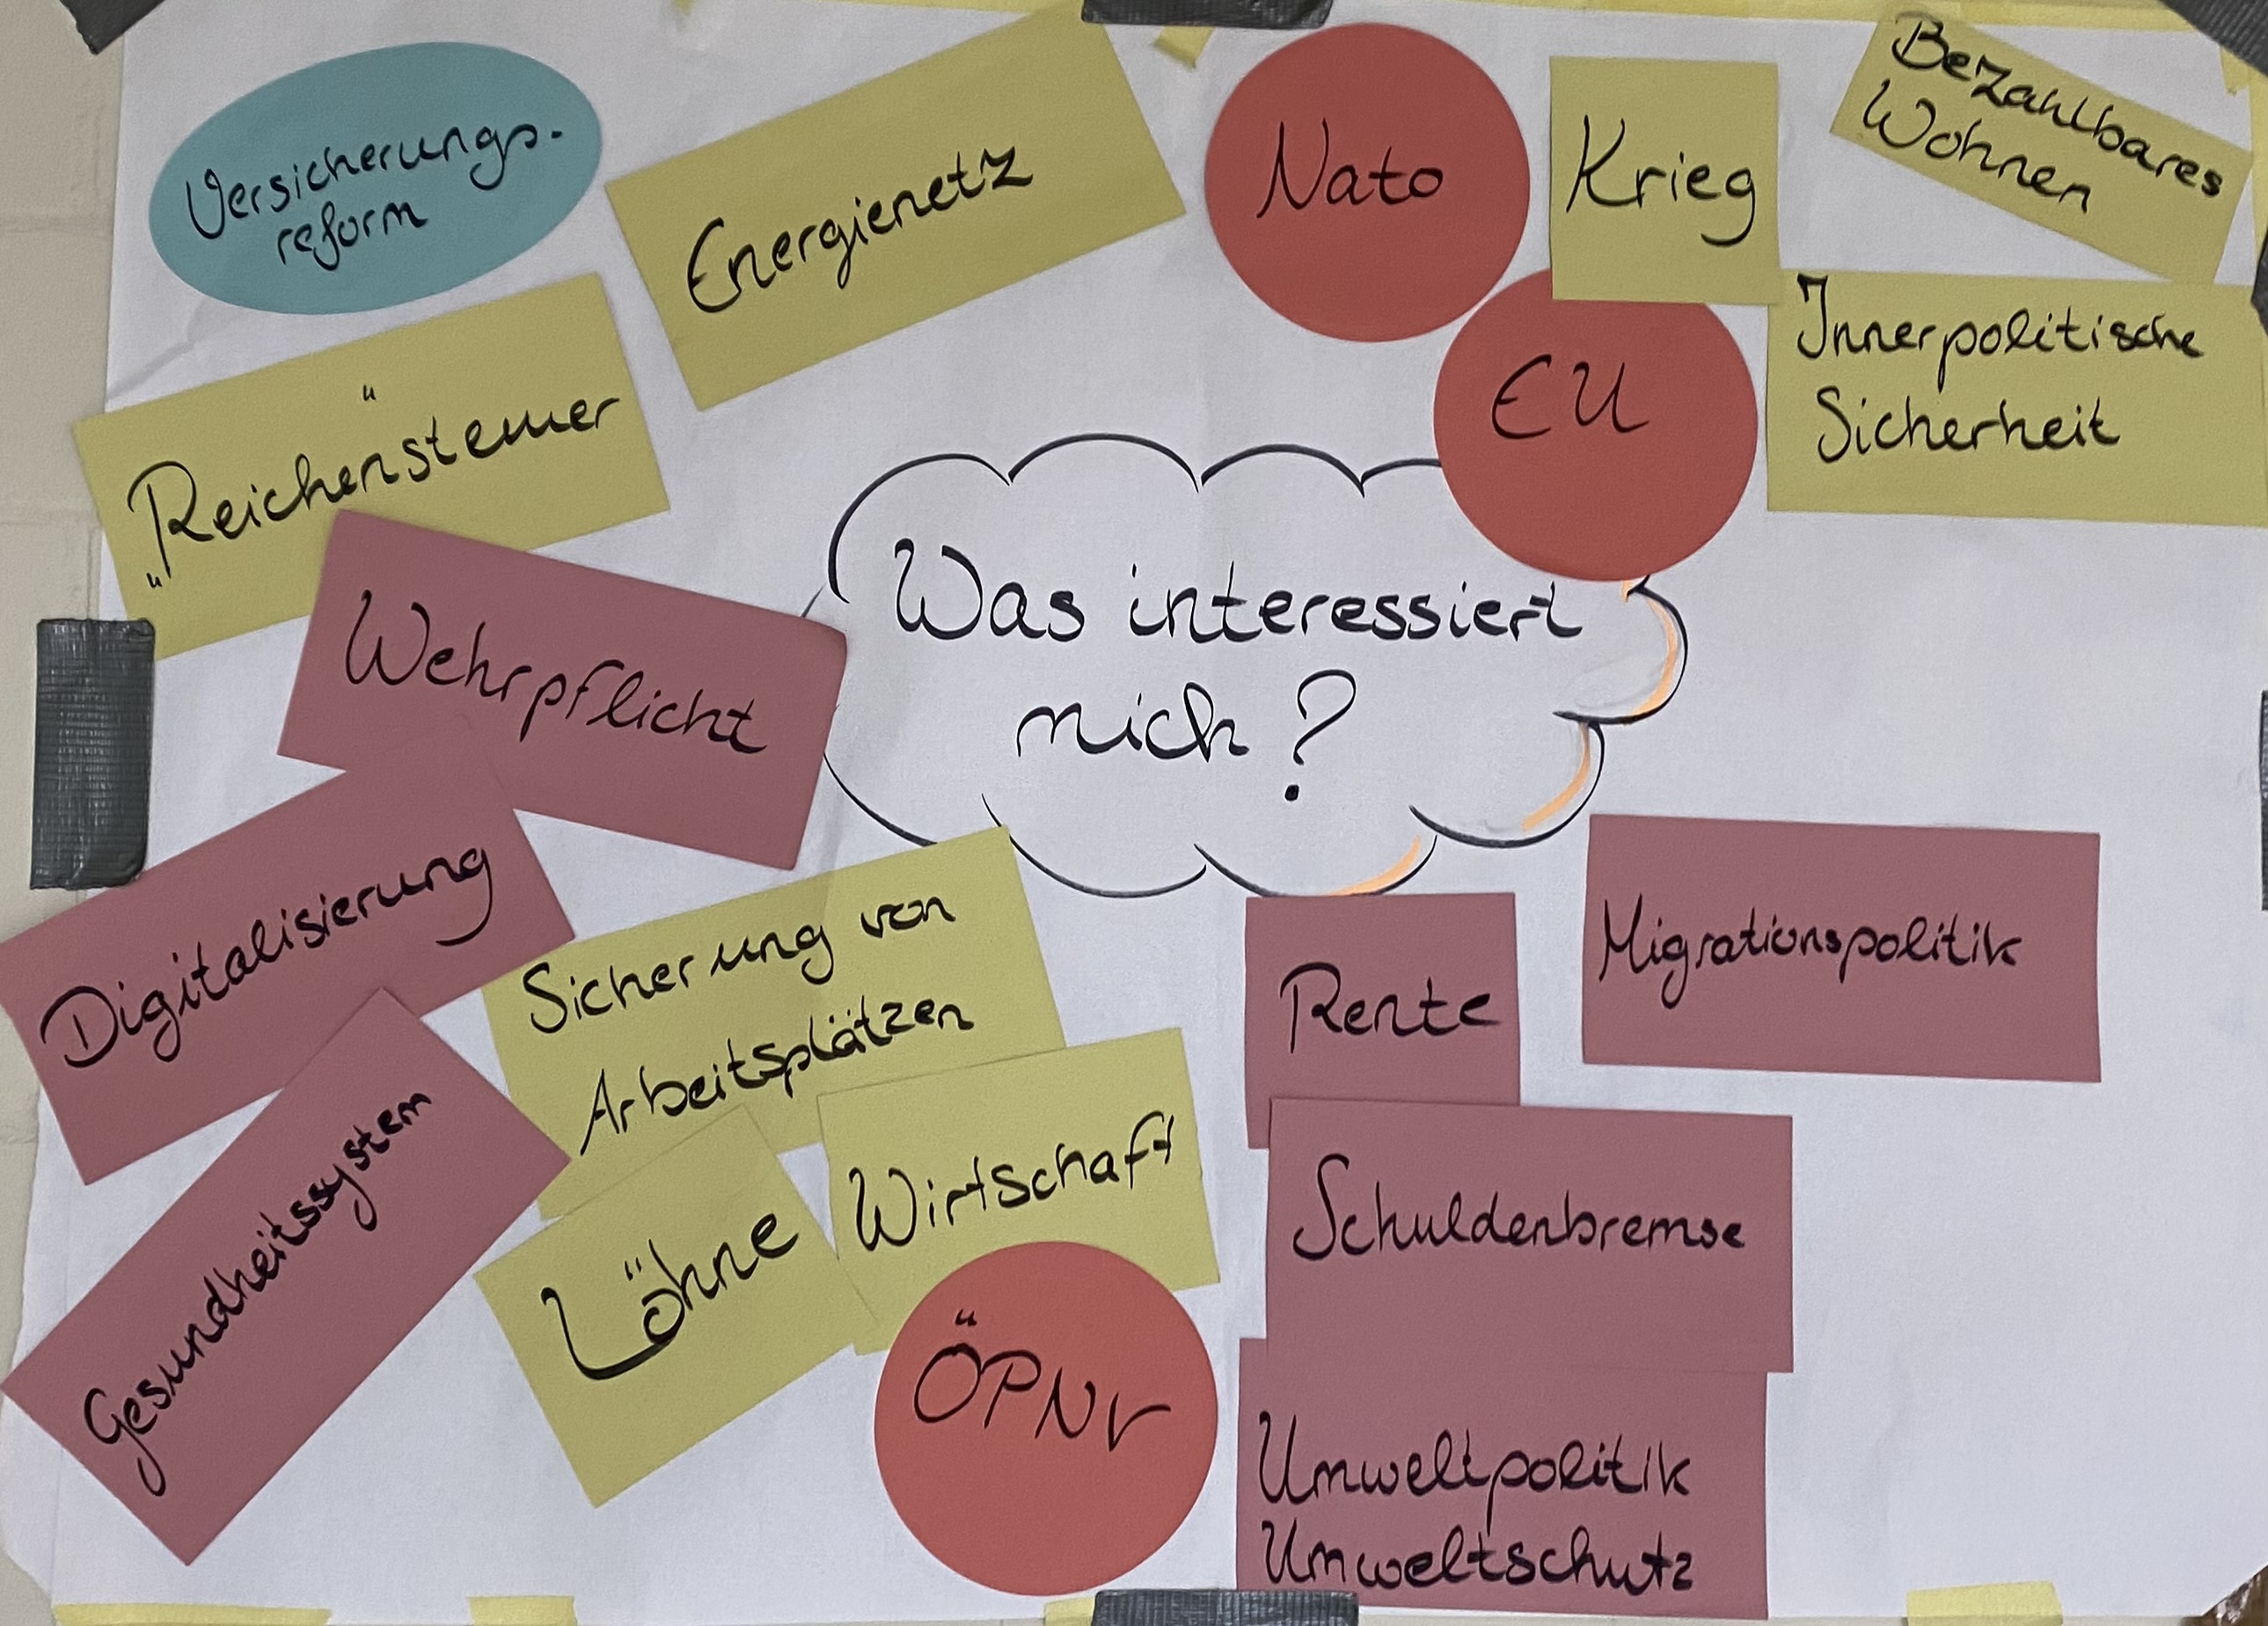 Versicherungs-
reform
Energienetz
Nato
Krieg
Bezahlbares
Wohnen
„Reichensteuer"
EU
Innerpolitische
Sicherheit
Was interessiert
mich?
Wehrpflicht
Digitalisierung
Sicherung von
Arbeitsplätzen
Rente
Migrationspolitik
Gesundheitssystem
Löhne
Wirtschaft
Schuldenbremse
ÖPNV
Umweltpolitik
Umweltschutz